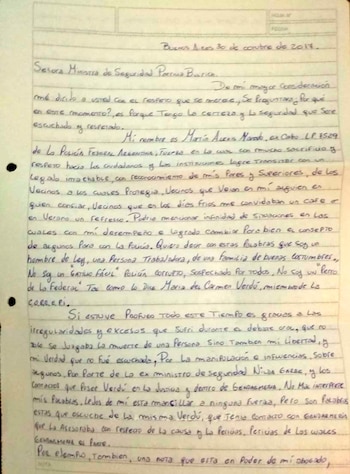 Buenos Aires 20 de octubre de 2017.
Señora Ministra de Seguridad Patricia Bullrich.
De mi mayor consideración
me dirijo a usted con el respeto que se merece, Se preguntara ¿Por qué
en este momento?, es Porque Tengo la certeza y la seguridad que sere
escuchado y respetado.
Mi nombre es Martín Alexis Naredo, ex Cabo L.P
de la Policía Federal Argentina, fuerza en la cual con mucho sacrificio y
respeto hacia los ciudadanos y las instituciones logre Transitar con un
Legajo intachable, con reconocimiento de mis Pares y Superiores, de los
Vecinos a los cuales Protegia, Vecinos que Veian en mi alguien en
quien confiar, Vecinos que en los dias frios me convidaban un café o
en Verano un refresco. Podria mencionar infinidad de situaciones en las
cuales con mi desempeño e logrado cambiar Para bien el concepto
de algunos Para con la Policia. Quiero decir con estas Palabras que soy un
hombre de Ley, una Persona Trabajadora, de una Familia de buenas costumbres,
No soy un "Gatillo Fácil" Policia corrupto, sospechado por todos, No soy un "Perro
de la Federal" Tal como lo dice Maria del Carmen Verdú, miembro de la
CORREPI.
Si estuve Profugo todo este Tiempo es gracias a las
irregularidades y excesos que sufri durante el debate oral, que no
solo se Juzgaba la muerte de una Persona sino Tambien mi Libertad, y
mi Verdad que no fué escuchada. Por la manipulación e influencias, sobre
algunos, Por Parte de la ex ministro de Seguridad Nilda Garre, y los
contactos que Posee Verdú en la Justicia y dentro de Gendarmeria. No mal interprete
mis Palabras, Lejos de mi esta mancillar a ninguna fuerza, Pero son Palabras
estas que escuche de la misma Verdú, que Tenia contacto con Gendarmeria
que la Asesoraba con respecto de la causa y la Pericias, Pericias de las cuales
Gendarmeria es Parte.
Por ejemplo, Tambien, una nota que esta en Poder de mi abogado,